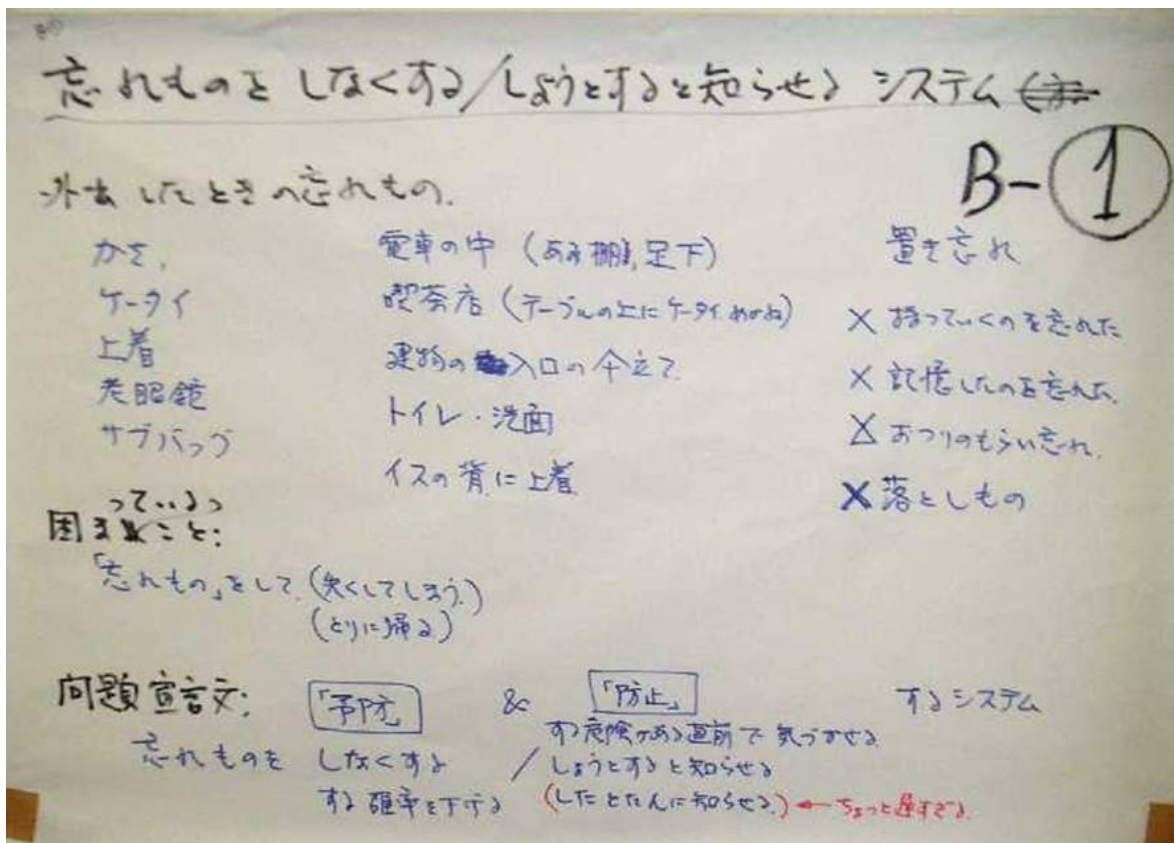 忘れものをしなくする/しようとすると知らせるシステム
B-①
外出したときの忘れもの.
かさ,
ケータイ
上着
老眼鏡
サブバッグ
電車の中 (あみ棚, 足下)
喫茶店 (テーブルの上にケータイ めがね)
建物の入口の傘立て
トイレ・洗面
イスの背に上着
置き忘れ
× 持っていくのを忘れた
× 記憶したのを忘れた.
△ おつりのもらい忘れ.
× 落としもの
っている
困こと:
「忘れもの」をして (失くしてしまう.)
(とりに帰る)
問題宣言文: 「予防」 & 「防止」 するシステム
する危険がある直前で気づかせる
忘れものを しなくする / しようとすると知らせる
する確率を下げる (したとたんに知らせる.) ← ちょっと遅すぎる.